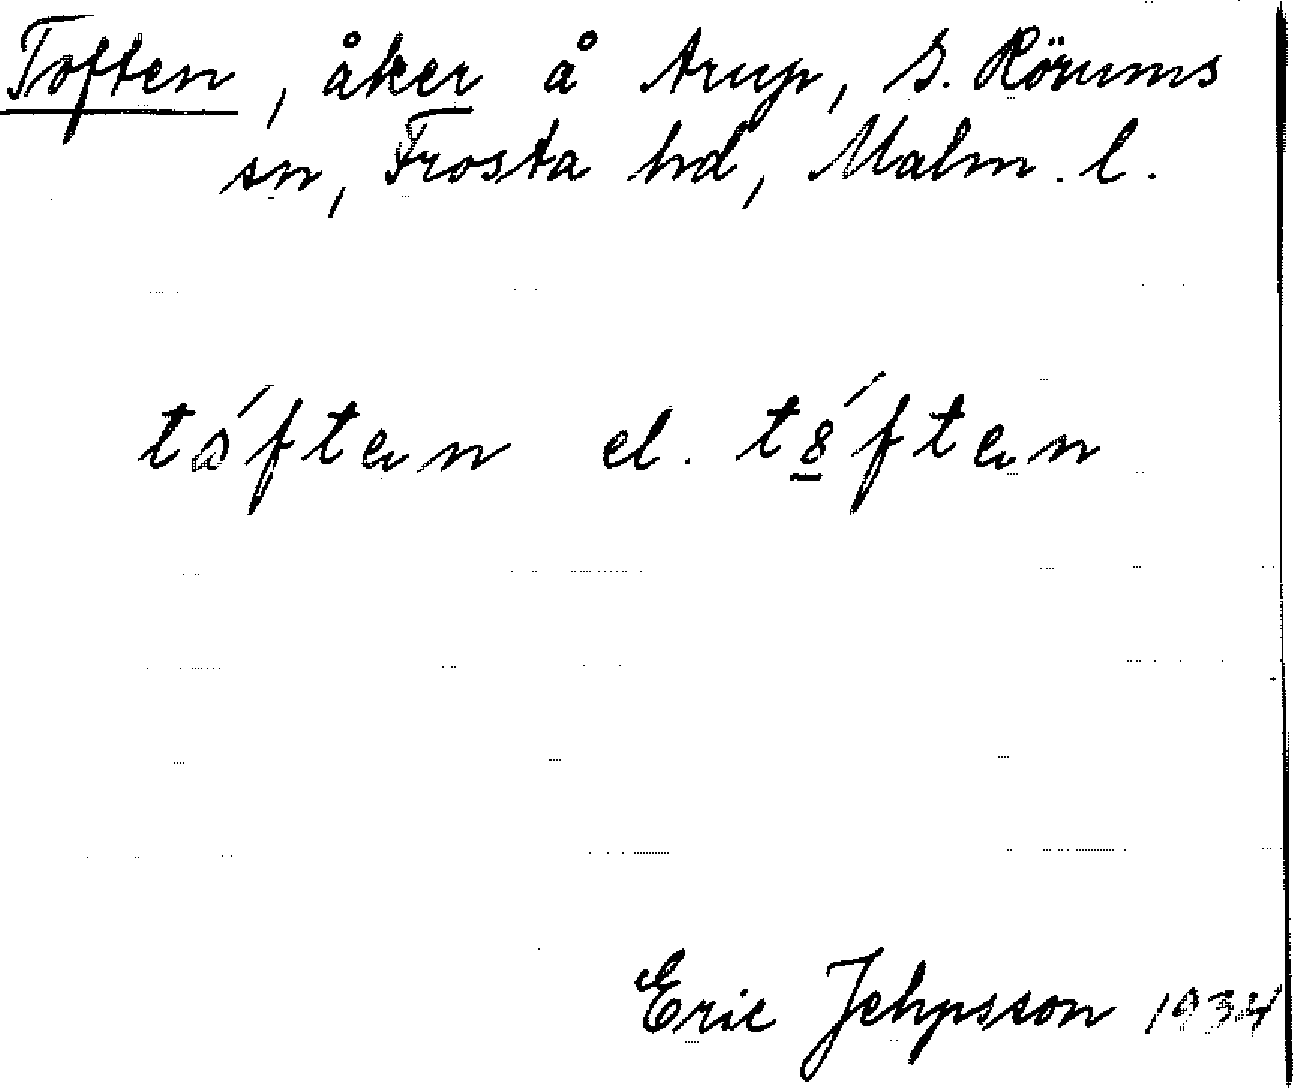 Toften, åker å Arup, S. Rörums
sn, Frosta hd, Malm. l.
tɔ́ften el. t8́ften
Eric Jehpsson 1934